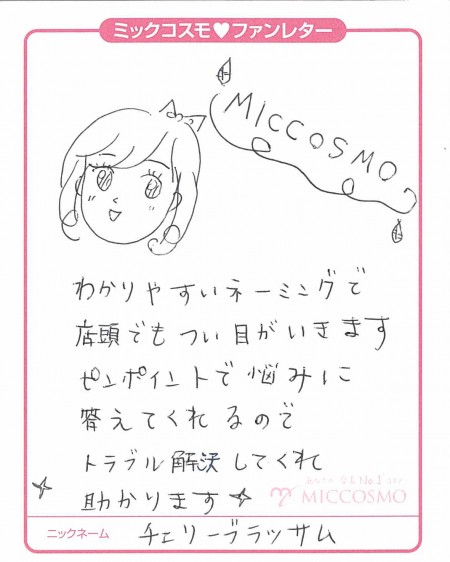 ミックコスモ♥ファンレター
MICCOSMO
わかりやすいネーミングで
店頭でもつい目がいきます
ピンポイントで悩みに
答えてくれるので
トラブル解決してくれ
助かります
MICCOSMO
ニックネーム チェリーブラッサム